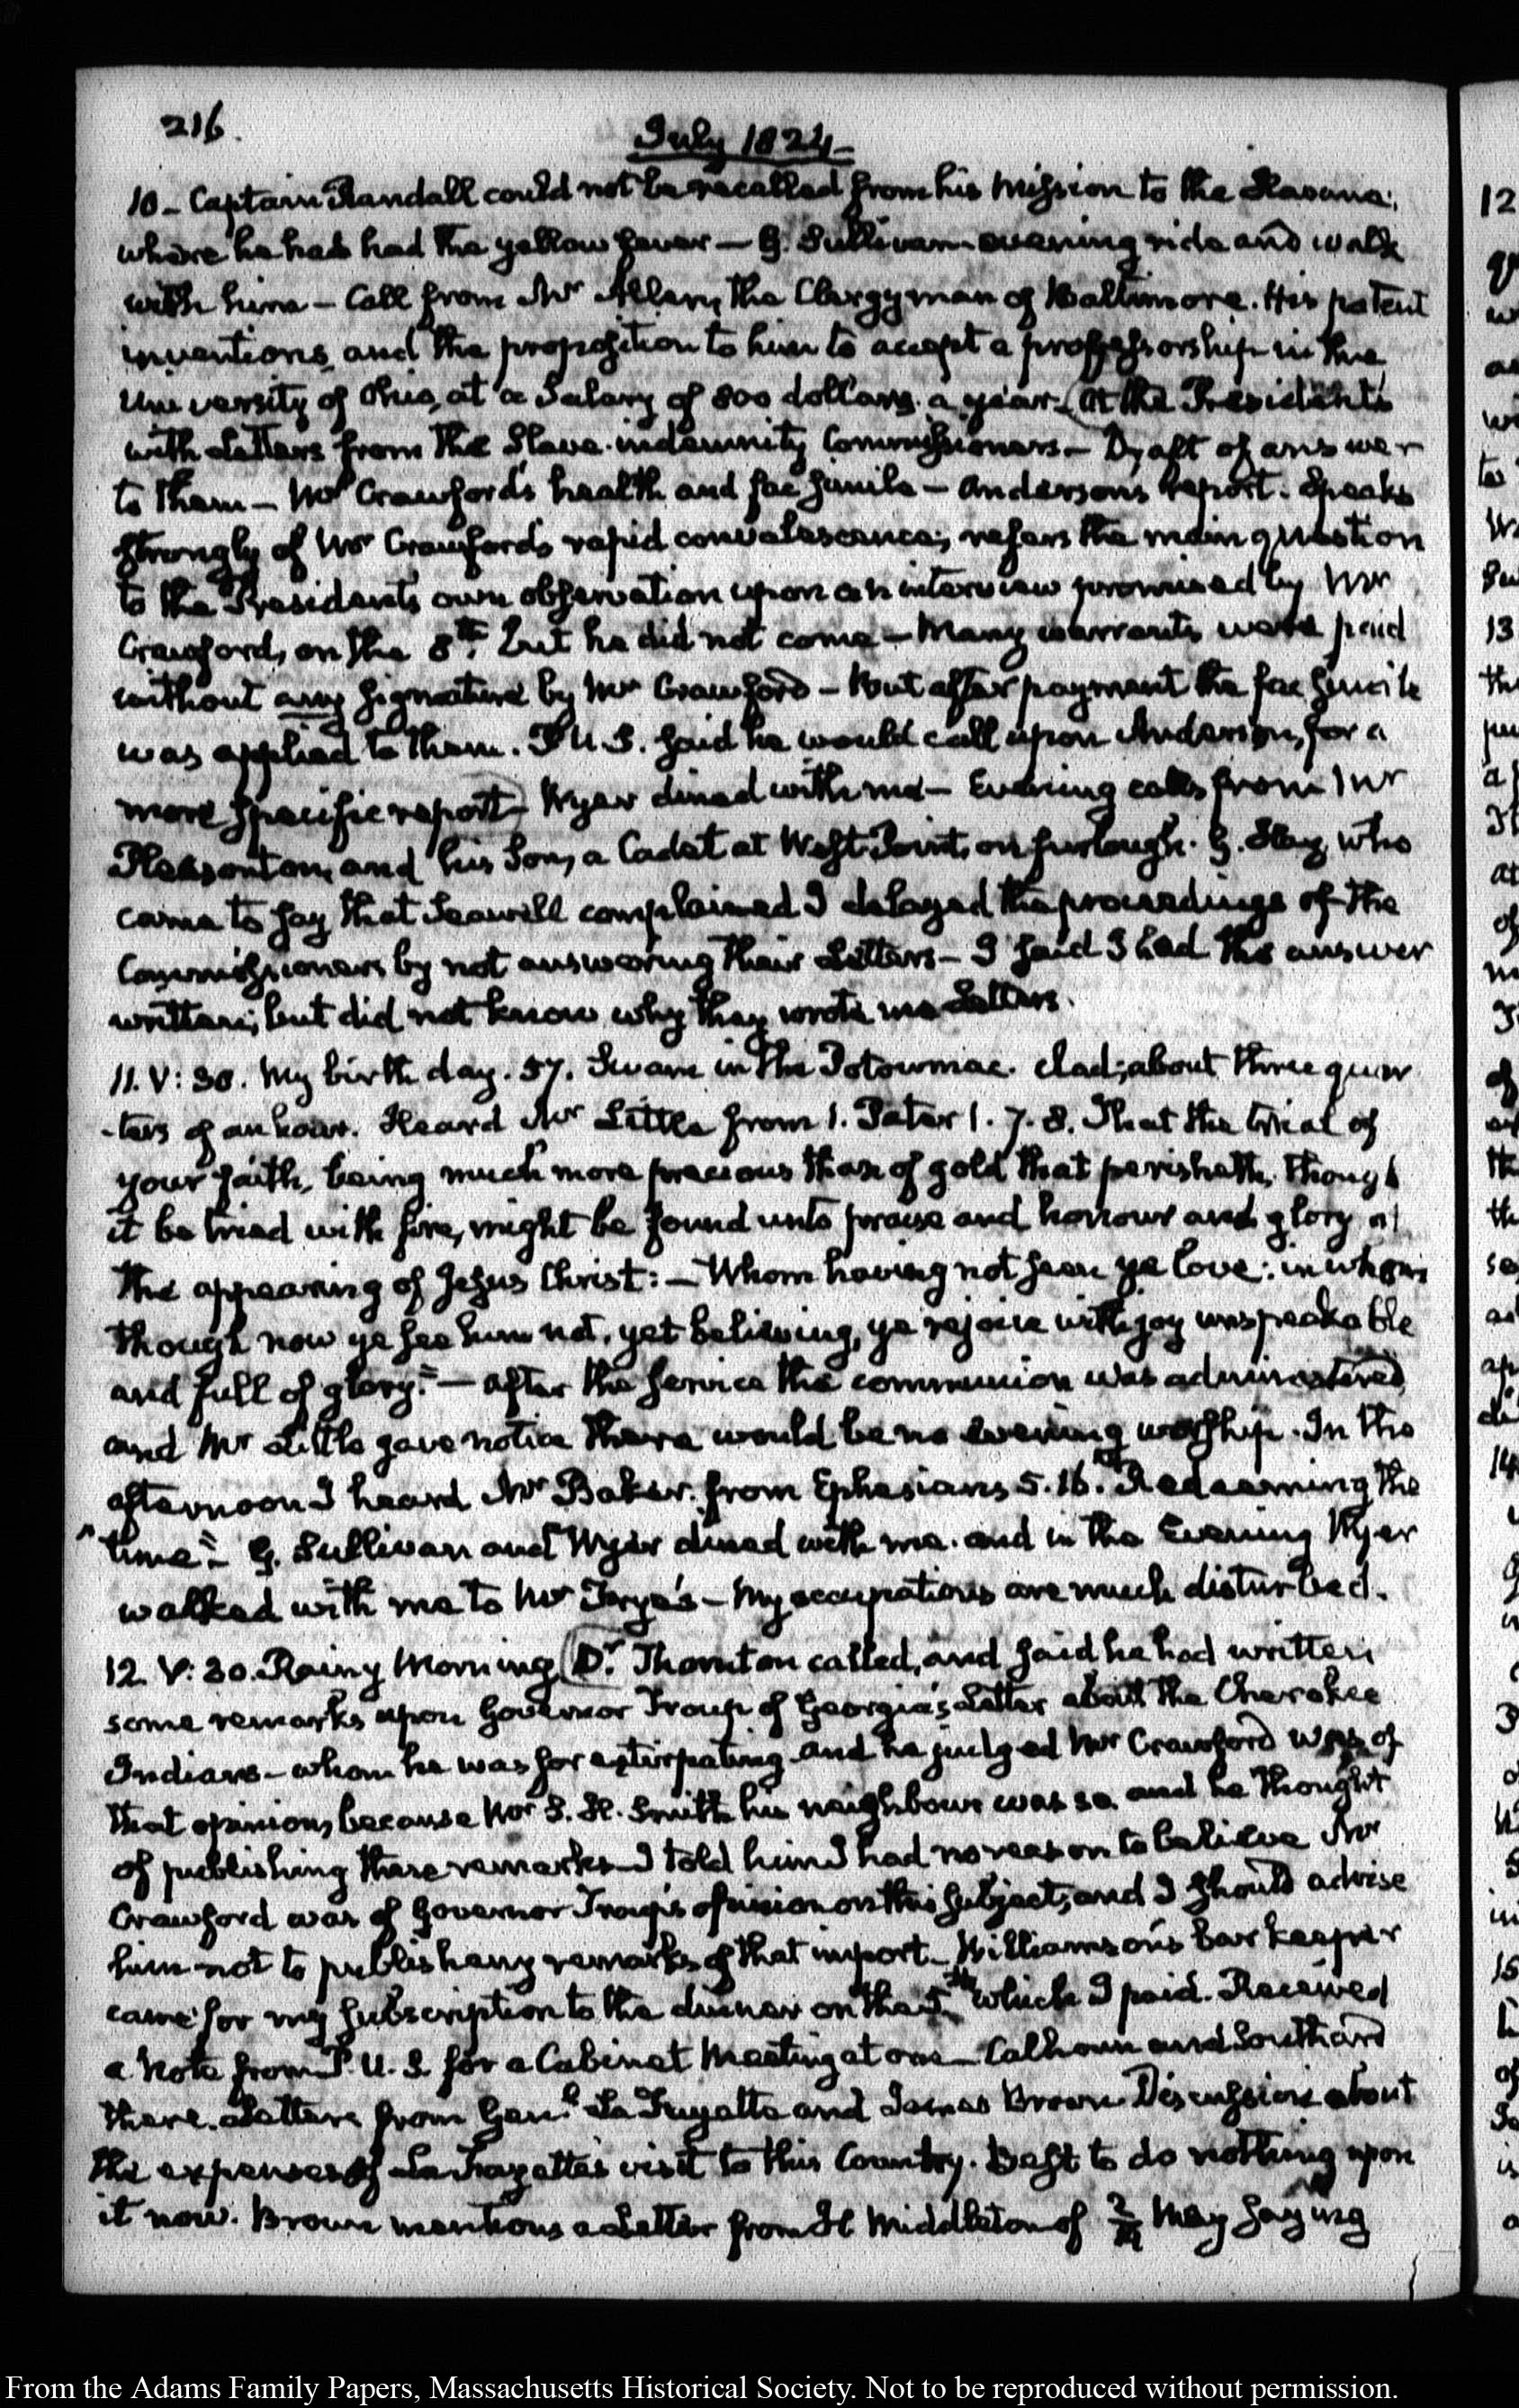 216.
July 1824—
10 — Captain Randall could not be recalled from his Mission to the Havana;
where he had had the yellow fever — G. Sullivan evening ride and walk
with him — Call from Mr Allen, the Clergyman of Baltimore. His patent
inventions, and the proposition to him to accept a professorship in the
University of Ohio, at a Salary of 800 dollars a year. (At the President's
with Letters from the Slave-indemnity Commissioners — Draft of answer
to them — Mr Crawford's health and fac simile — Anderson's report. Speaks
strongly of Mr Crawford's rapid convalescence; refers the main question
to the President's own observation upon an interview promised by Mr
Crawford, on the 8th. but he did not come — Many warrants were paid
without any signature by Mr Crawford — But after payment the fac simile
was applied to them. P.U.S. said he would call upon Anderson, for a
more specific report) Wyer dined with me — Evening calls from Mr
Pleasonton, and his Son, a Cadet at West-Point, on furlough. G. Hay, who
came to say that Seawell complained I delayed the proceedings of the
Commissioners by not answering their Letters — I said I had the answer
written; but did not know why they wrote me Letters.
11. V: 30. My birth day. 57. Swam in the Potowmac. clad; about three quar
-ters of an hour. Heard Mr Little from 1. Peter 1. 7. 8. That the trial of
your faith, being much more precious than of gold that perisheth, though
it be tried with fire, might be found unto praise and honour and glory at
the appearing of Jesus Christ: — Whom having not seen ye love: in whom
though now ye see him not, yet believing, ye rejoice with joy unspeakable
and full of glory." — After the service the communion was administered
and Mr Little gave notice there would be no evening worship. In the
afternoon I heard Mr Baker. from Ephesians 5. 16. "Redeeming the
"time" — G. Sullivan and Wyer dined with me. and in the Evening Wyer
walked with me to Mr Frye's — My occupations are much disturbed.
12. V: 30. Rainy Morning (Dr Thornton called, and said he had written
some remarks upon Governor Troup of Georgia's Letter about the Cherokee
Indians — whom he was for extirpating and he judged Mr Crawford was of
that opinion, because Mr S. H. Smith his neighbour was so. and he thought
of publishing these remarks — I told him I had no reason to believe Mr
Crawford was of Governor Troup's opinion on this subject, and I should advise
him not to publish any remarks of that import — Williamson's bar keeper
came for my subscription to the dinner on the 5th which I paid. Received
a Note from P.U.S. for a Cabinet Meeting at one — Calhoun and Southard
there. Letters from Genl. La Fayette and James Brown. Discussion about
the expenses of La Fayette's visit to this Country. Best to do nothing upon
it now. Brown mentions a Letter from H Middleton of May saying
From the Adams Family Papers, Massachusetts Historical Society. Not to be reproduced without permission.